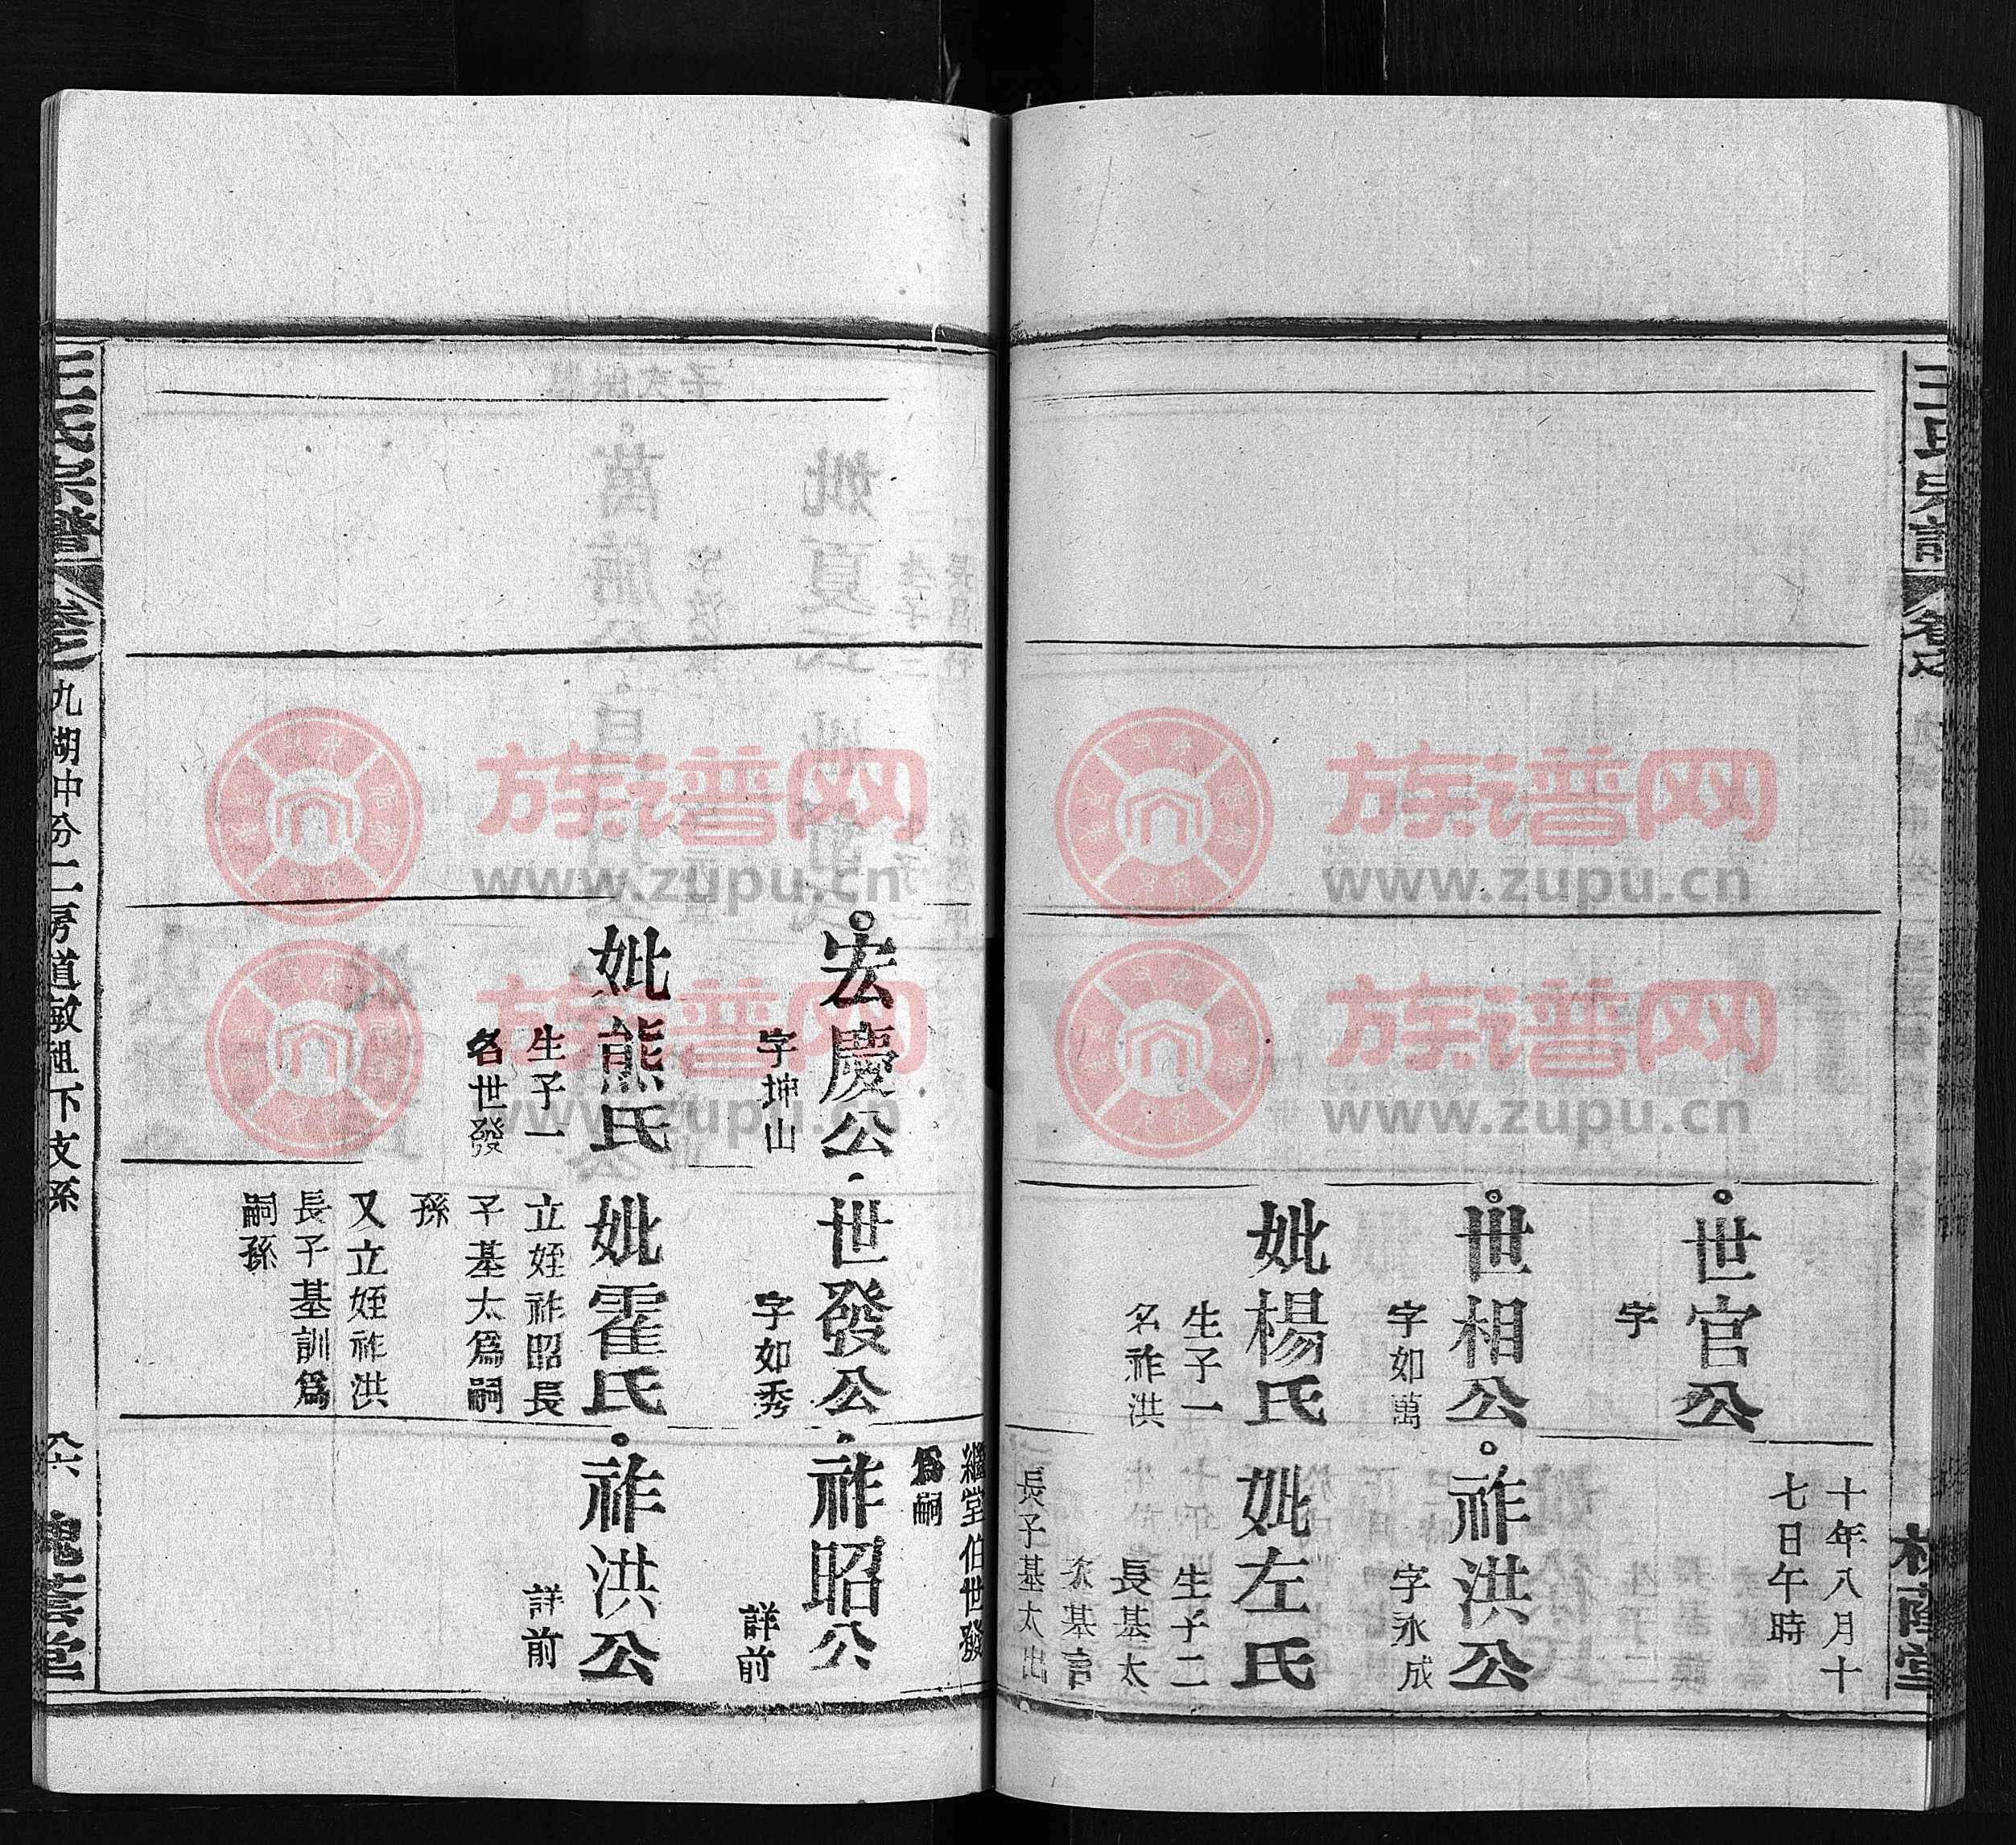 十年八月十
七日午時
世官公
字
世相公
字如萬
妣楊氏
生子一
名祚洪
祚洪公
字永成
妣左氏
生子二
長基太
次基官
長子基太出
繼堂伯世發
爲嗣
宏慶公
字坤山
妣熊氏
生子一
名世發
世發公
字如秀
妣霍氏
立姪祚昭長
子基太爲嗣
孫
又立姪祚洪
長子基訓爲
嗣孫
祚昭公
詳前
祚洪公
詳前
王氏宗譜
卷之
九湖中分二房道敏祖下支系
槐蔭堂
族谱网
www.zupu.cn
族谱网
www.zupu.cn
族谱网
www.zupu.cn
族谱网
www.zupu.cn